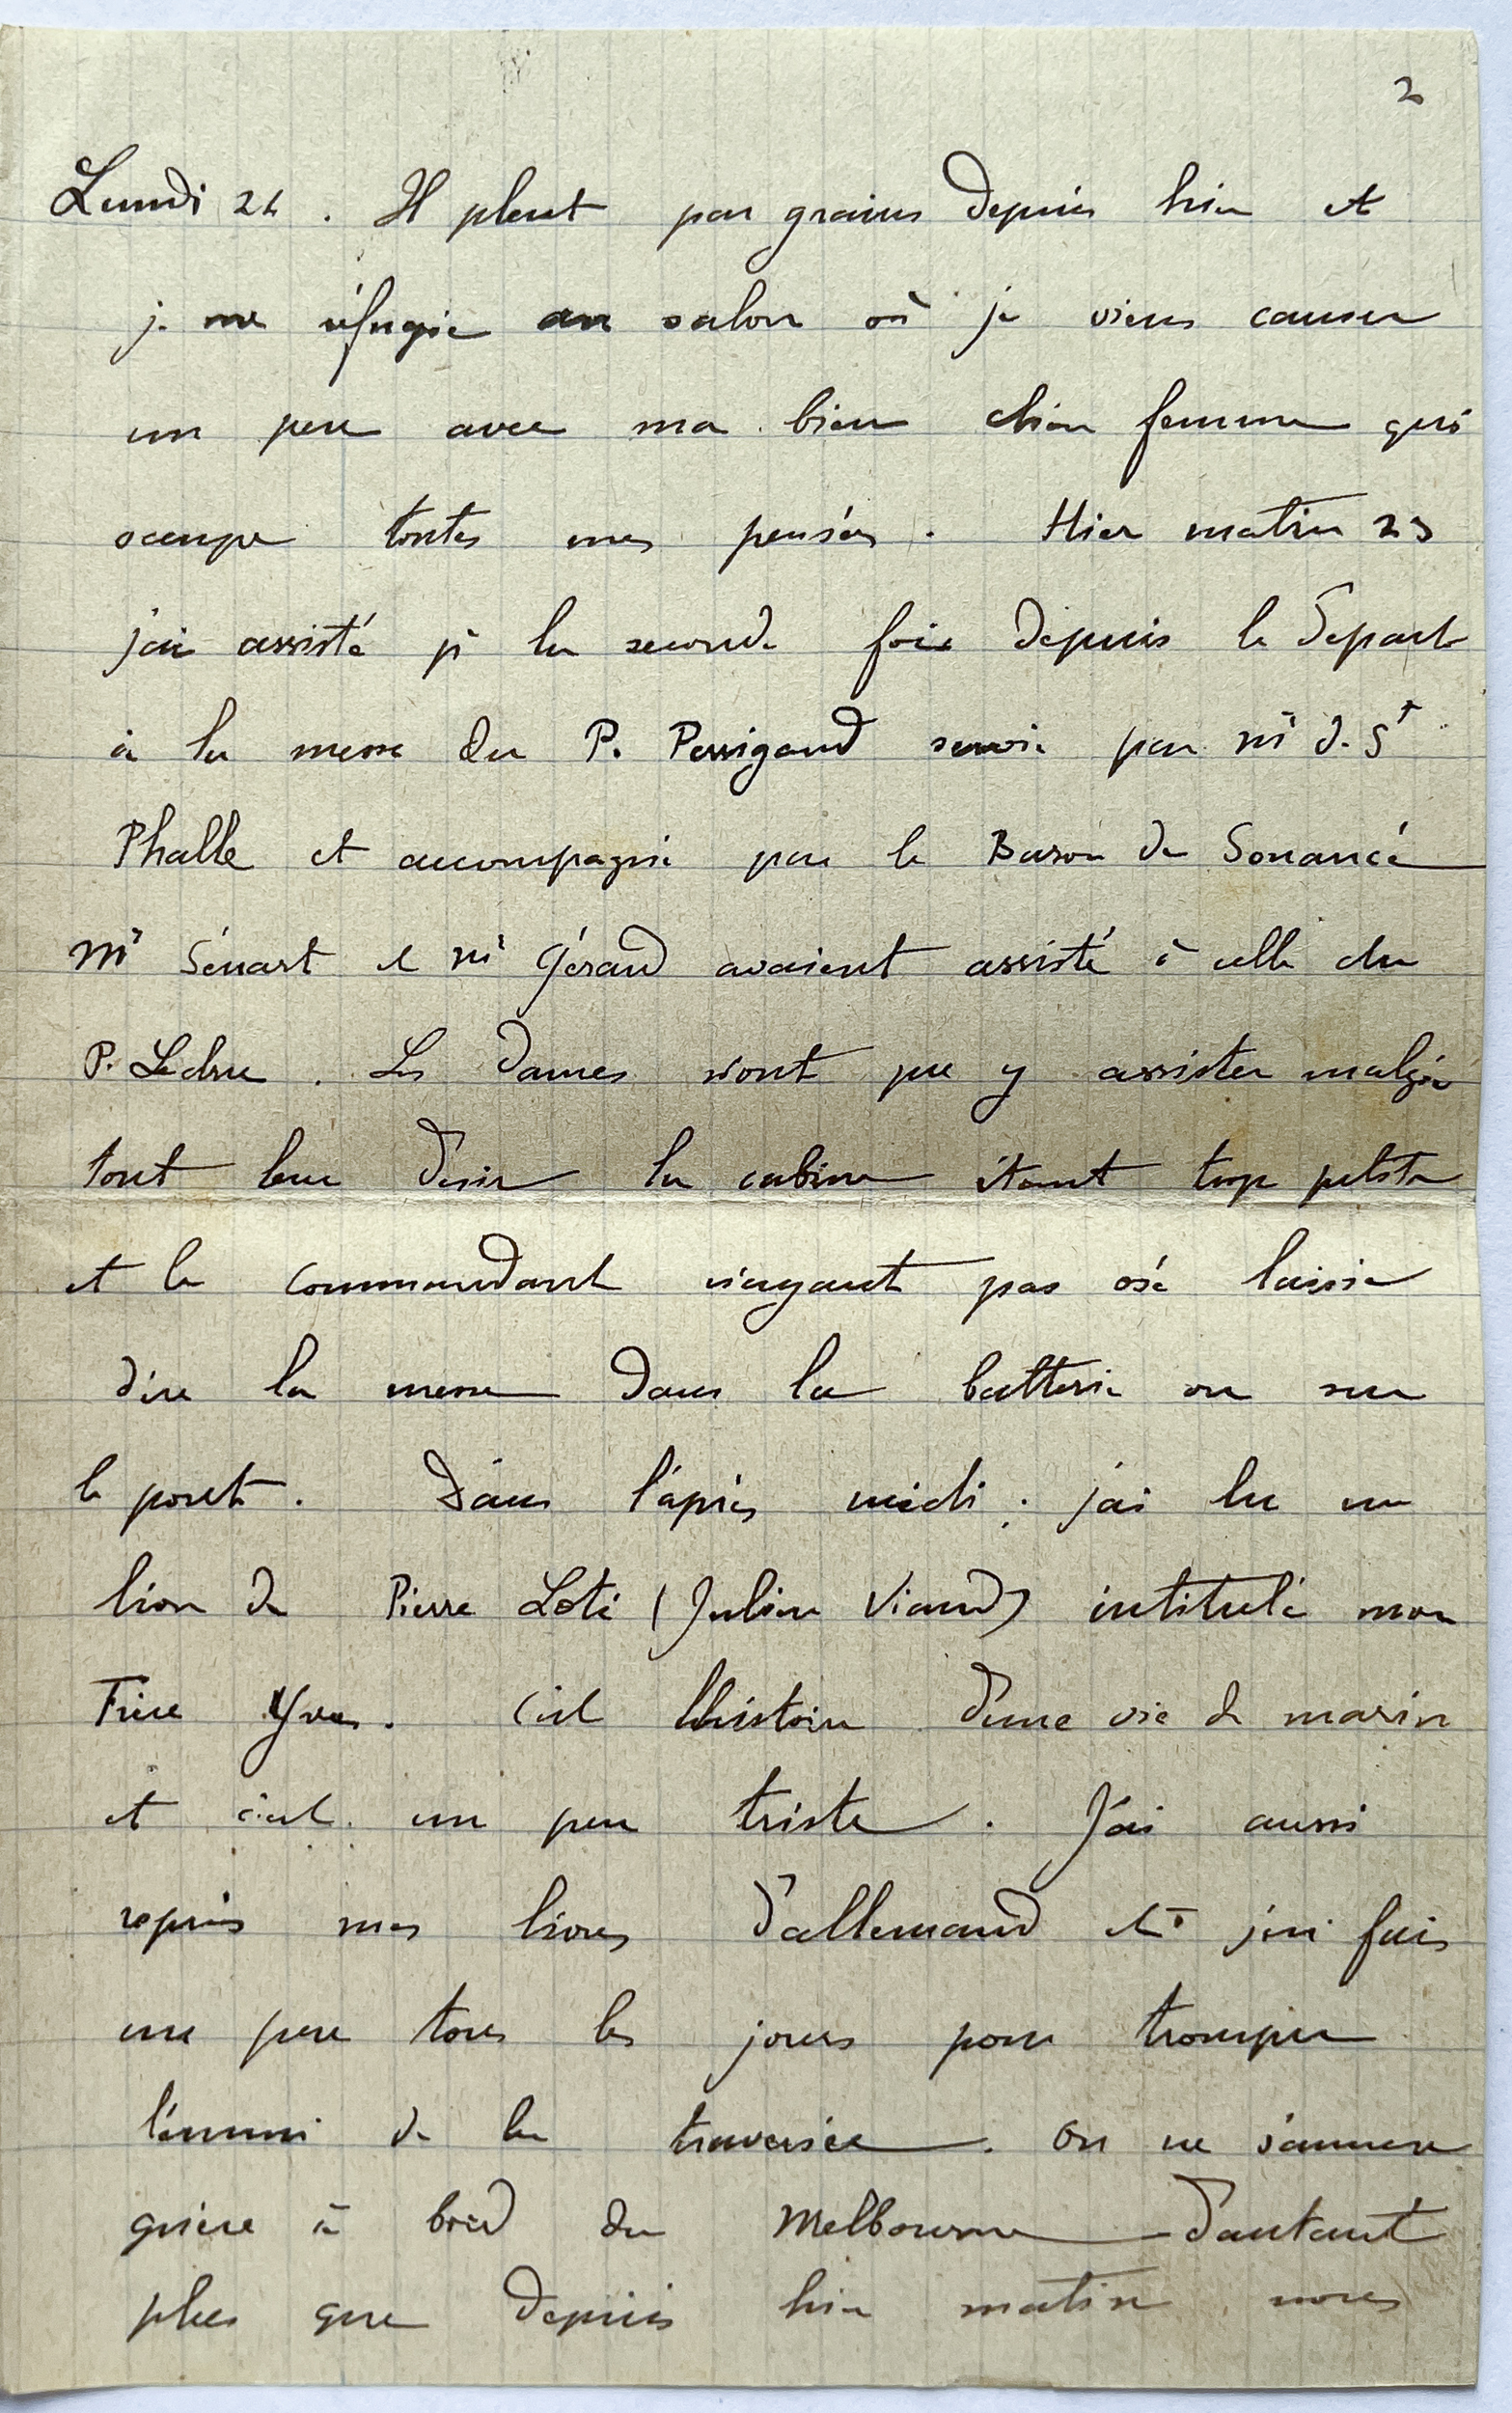 2
Lundi 24. Il pleut par grains depuis hier et
je me réfugie au salon où je viens causer
un peu avec ma bien chère femme qui
occupe toutes mes pensées. Hier matin 23
j'ai assisté pr la seconde fois depuis le départ
à la messe du P. Perrigaud servie par Mr de St
Phalle et accompagné par le Baron de Sonancé
Mr Sénart et Mr Géraud avaient assisté à celle du
P. Ledru. Les dames n'ont pu y assister malgré
tout leur désir la cabine étant trop petite
et le commandant n'ayant pas osé laisser
dire la messe dans la batterie ou sur
le pont. Dans l'après midi j'ai lu un
livre de Pierre Loti (Julien Viaud) intitulé mon
Frère Yves. C'est l'histoire d'une vie de marin
et c'est un peu triste. J'ai aussi
repris mes livres d'allemand et j'en fais
un peu tous les jours pour tromper
l'ennui de la traversée. On ne s'amuse
guère à bord du Melbourne d'autant
plus que depuis hier matin nous